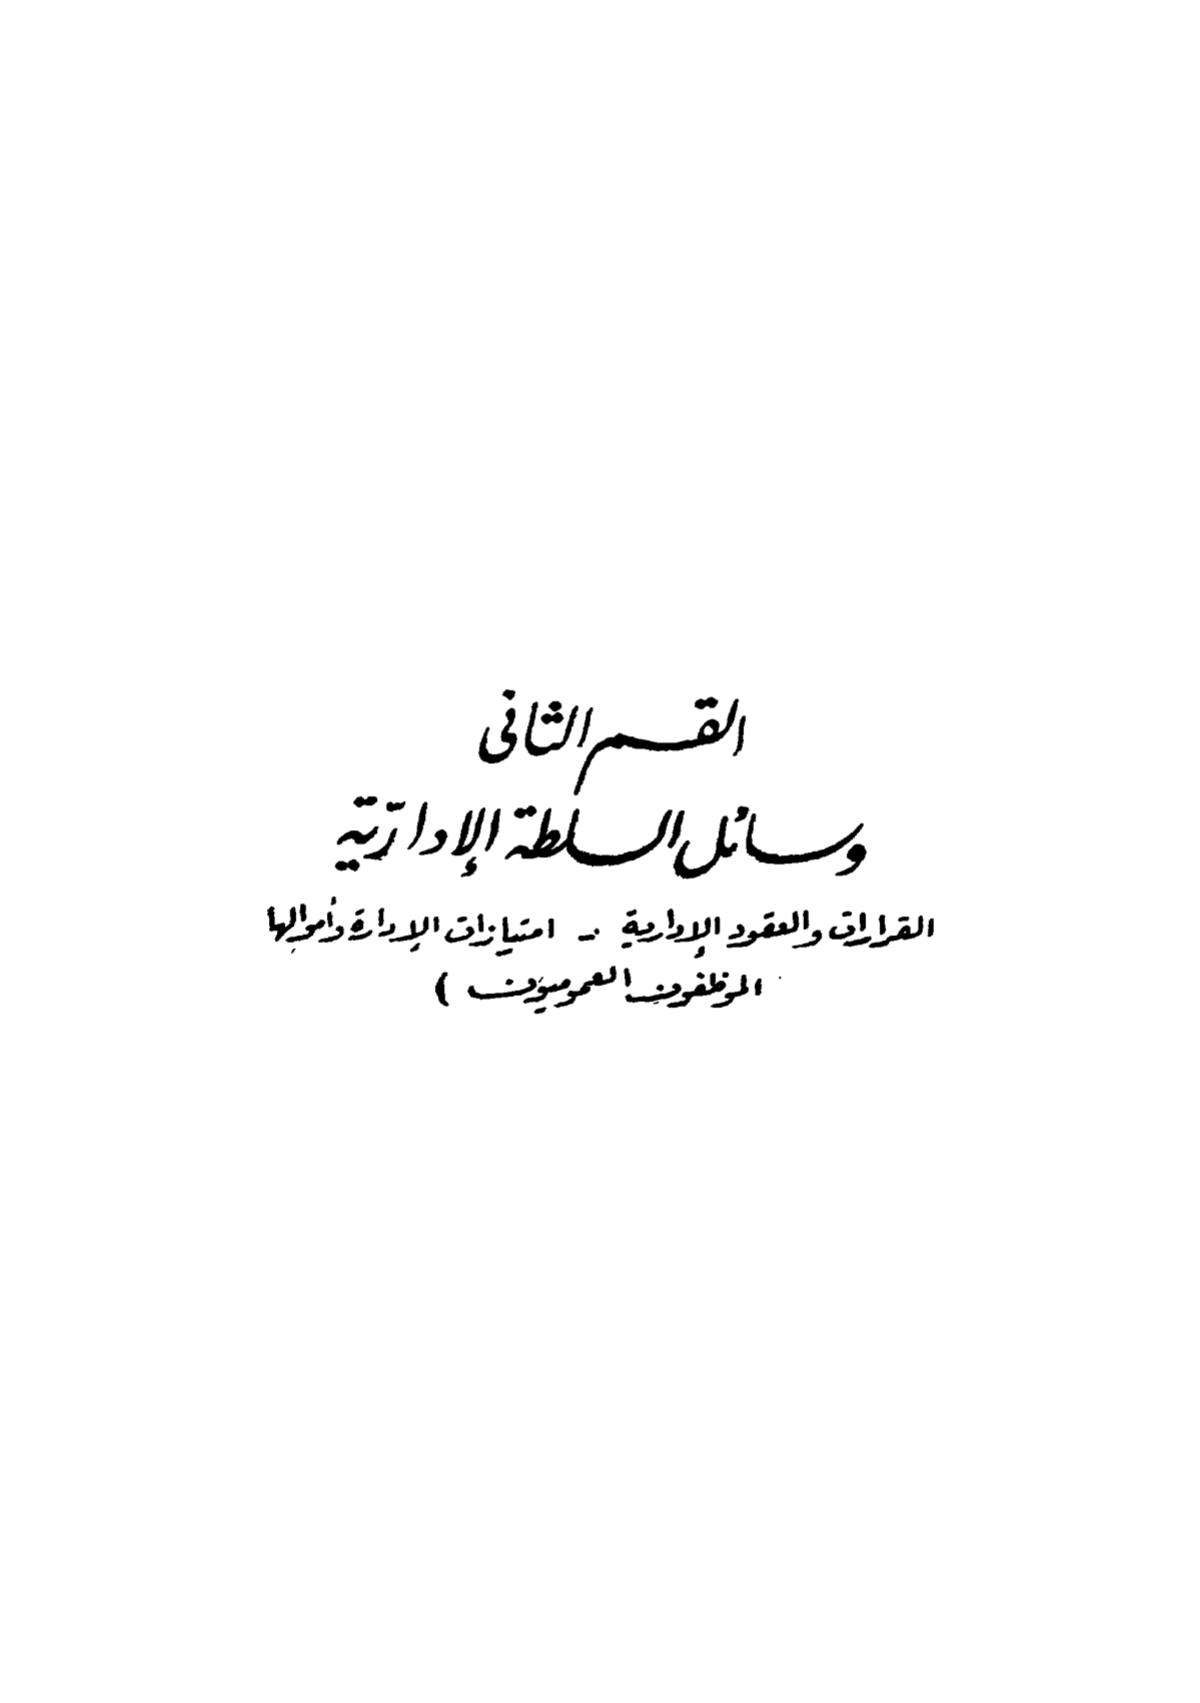 القسم الثانى
وسائل السلطة الإداريّة
القرارات والعقود الإدارية - امتيازات الإدارة وأموالها
الموظفون العموميون )